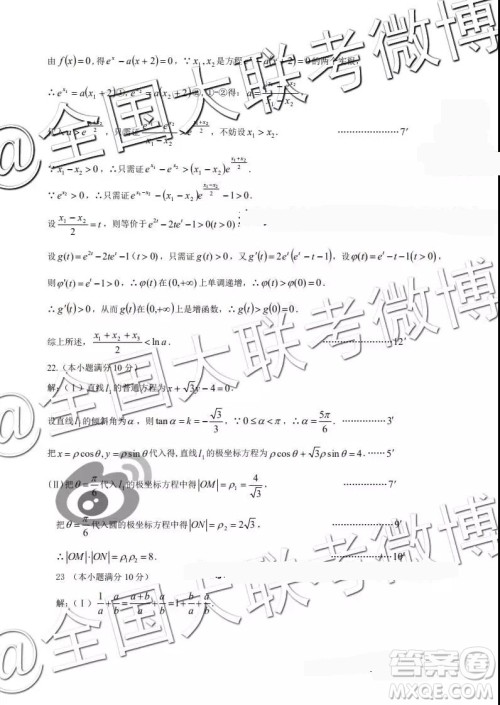 由 f(x)=0,得 e^x − a(x+2)=0，∵ x₁, x₂ 是方程 e^x − a(x+2)=0 的两个实根，
∴ e^{x₁} = a(x₁+2)①, e^{x₂} = a(x₂+2)②, ①−②得: a =
只需证 > e^{(x₁+x₂)/2}，不妨设 x₁ > x₂. ………………7′
∵ x₁ − x₂ > 0，∴ 只需证 e^{x₁} − e^{x₂} > (x₁ − x₂)e^{(x₁+x₂)/2}.
∵ e^{x₂} > 0，∴ 只需证 e^{x₁−x₂} − (x₁ − x₂)e^{(x₁−x₂)/2} − 1 > 0.
设 (x₁ − x₂)/2 = t，则等价于 e^{2t} − 2te^t − 1 > 0 (t > 0)
设 g(t) = e^{2t} − 2te^t − 1 (t > 0)，只需证 g(t) > 0，又 g′(t) = 2e^t(e^t − t − 1)，设 φ(t) = e^t − t − 1，
则 φ′(t) = e^t − 1 > 0，∴ φ(t) 在 (0,+∞) 上单调递增，∴ φ(t) > φ(0) = 0.
∴ g′(t) > 0，从而 g(t) 在 (0,+∞) 上是增函数，∴ g(t) > g(0) = 0.
综上所述，(x₁ + x₂ + x₃)/2 < ln a. ………………12′
22.（本小题满分 10 分）
解:（Ⅰ）直线 l₁ 的普通方程为 x + √3y − 4 = 0.
设直线 l₁ 的倾斜角为 α，则 tan α = k = −√3/3，∵ 0 ≤ α < π，∴ α = 5π/6. ………………3′
把 x = ρcosθ, y = ρsinθ 代入得,直线 l₁ 的极坐标方程为 ρcosθ + √3ρsinθ = 4. ……5′
(Ⅱ) 把 θ = π/6 代入 l₁ 的极坐标方程中得 |OM| = ρ₁ = 4/√3 ………………7′
把 θ = π/6 代入圆的极坐标方程中得 |ON| = ρ₂ = 2√3 ………………9′
∴ |OM|·|ON| = ρ₁ρ₂ = 8. ………………10′
23 （本小题满分 10 分）
解:（Ⅰ）1/a + 1/b = (a+b)/a + (a+b)/b = 1 + b/a + a/b
@全国大联考微博
@全国大联考微博
答案圈
MXQE.COM